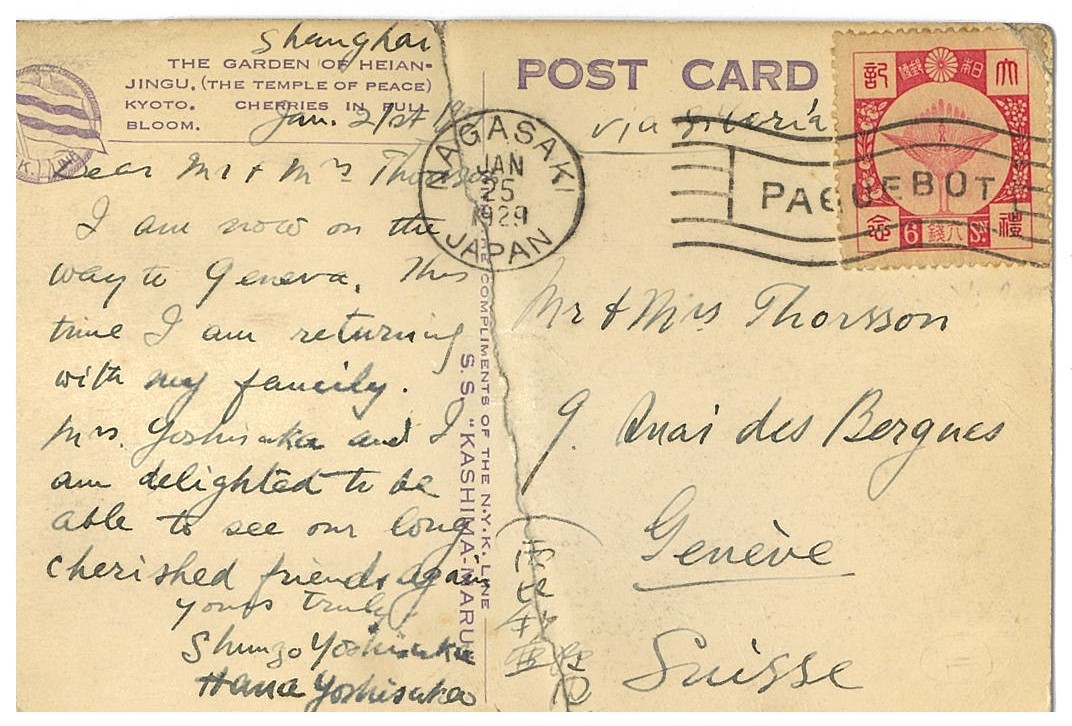 Shanghai
THE GARDEN OF HEIAN-
JINGU, (THE TEMPLE OF PEACE)
KYOTO. CHERRIES IN FULL
BLOOM.
Jan. 21st
Dear Mr & Mrs Thorsson
I am now on the
way to Geneva. This
time I am returning
with my family.
Mrs. Yoshisaka and I
am delighted to be
able to see our long
cherished friends again
yours truly
Shunzo Yoshisaka
Hana Yoshisaka
COMPLIMENTS OF THE N.Y.K. LINE
S.S. "KASHIMA-MARU"
POST CARD
via Siberia
NAGASAKI
JAN
25
1929
JAPAN
PAQUEBOT
大日本
記念
大禮
6 錢六 S.
Mr & Mrs Thorsson
9. Quai des Bergues
Genève
Suisse